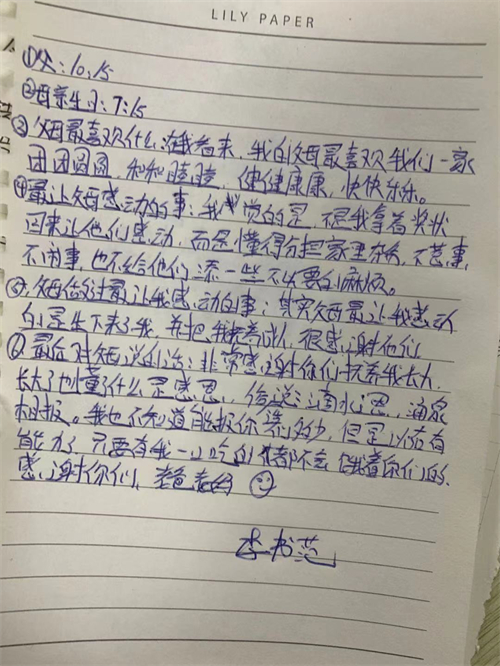 LILY PAPER
①父:10.15
②母亲生日:7.15
③父母最喜欢什么:在我看来,我的父母最喜欢我们一家
团团圆圆,和和睦睦,健健康康,快快乐乐。
④最让父母感动的事:我觉的是,不是我拿着奖状
回来让他们感动,而是懂得分担家里杂务,不惹事,
不闹事,也不给他们添一些不必要的麻烦。
⑤父母做过最让我感动的事:其实父母最让我感动
的是生下来了我,并把我抚养成人,很感谢他们
⑥最后对父母说的话:非常感谢你们抚养我长大,
长大了也懂了什么是感恩,俗话说:滴水之恩,涌泉
相报。我也不知道能报你们多少,但是以后有
能力了,只要有我一口吃的我都不会饿着你们的,
感谢你们,
李书范